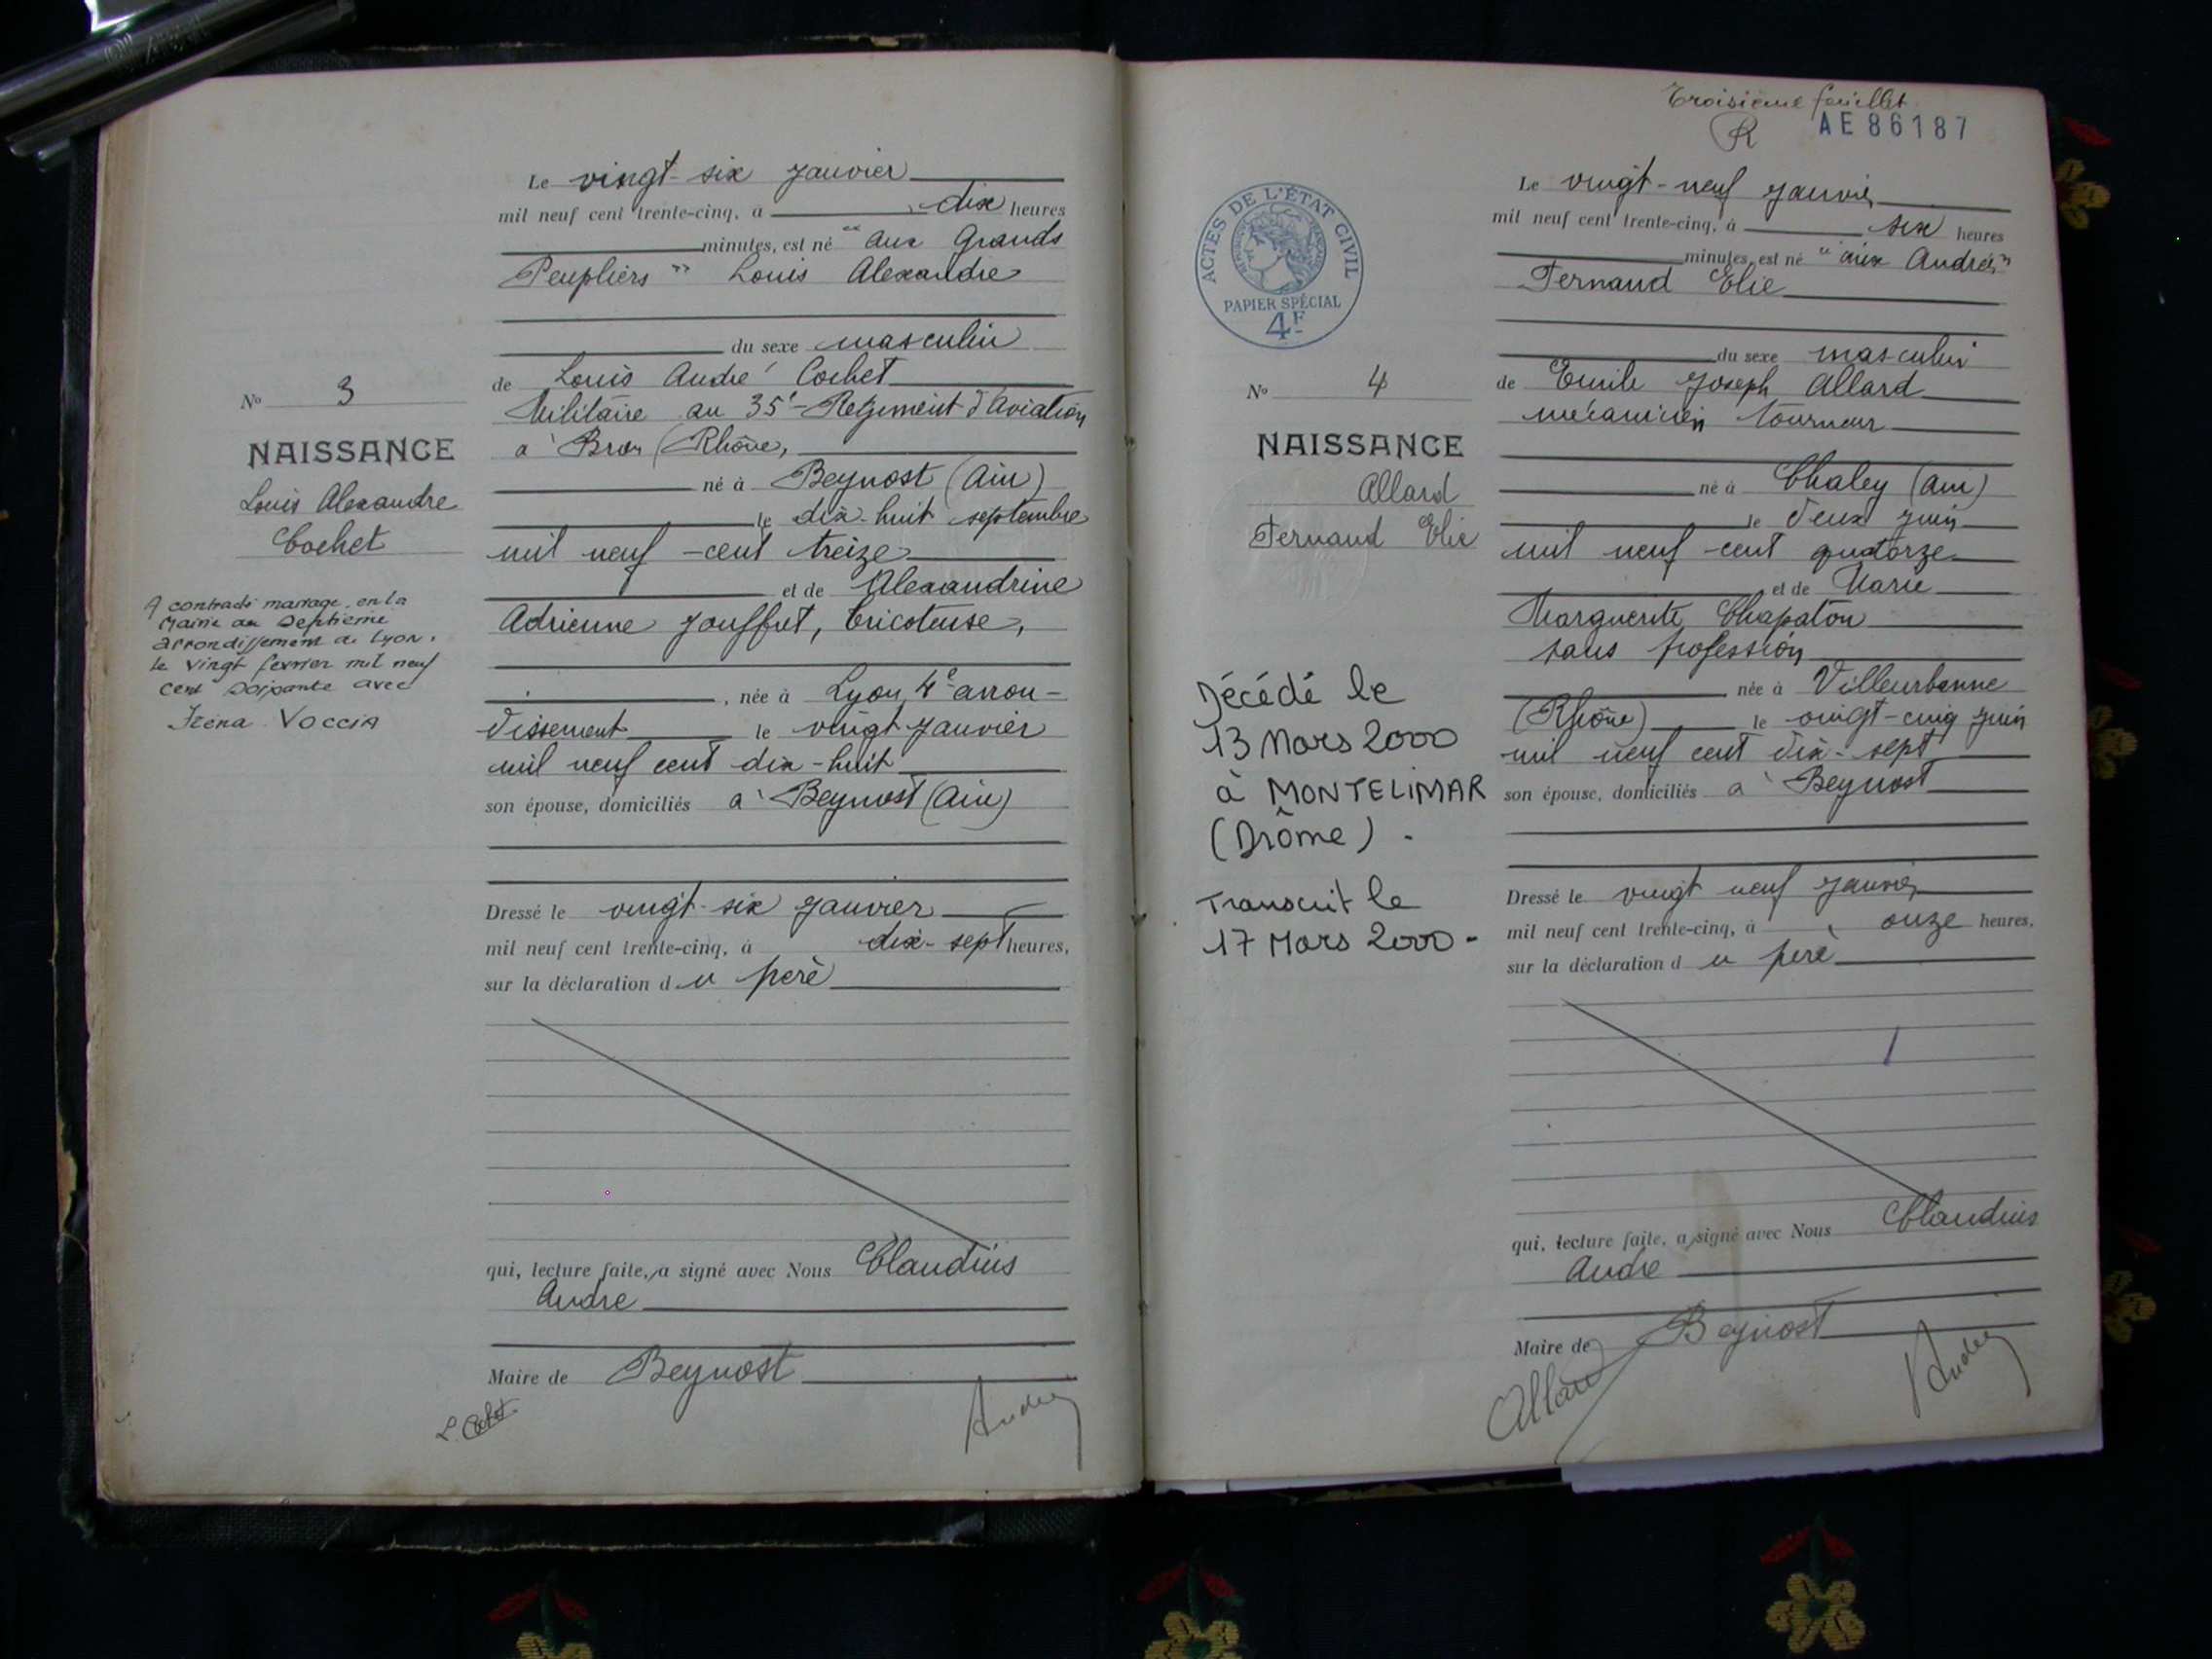 Le vingt-six janvier
mil neuf cent trente-cinq, à dix heures
minutes, est né "aux Grands
Peupliers" Louis Alexandre
du sexe masculin
de Louis André Cochet
Militaire au 35e Régiment d'Aviation
à Bron (Rhône,
né à Beynost (Ain)
le dix-huit septembre
mil neuf-cent treize
et de Alexandrine
Adrienne Jouffret, tricoteuse,
, née à Lyon, 4e arron-
dissement le vingt janvier
mil neuf cent dix-huit
son épouse, domiciliés à Beynost (Ain)
Dressé le vingt-six janvier
mil neuf cent trente-cinq, à dix-sept heures,
sur la déclaration du père
qui, lecture faite, a signé avec Nous Claudius
André
Maire de Beynost
L. Cochet
André
No 3
NAISSANCE
Louis Alexandre
Cochet
A contracté mariage en la
Mairie du Septième
arrondissement de Lyon,
le vingt février mil neuf
cent soixante avec
Iréna VOCCIA
Troisième feuillet
R AE86187
ACTES DE L'ÉTAT CIVIL
PAPIER SPÉCIAL
4F
Le vingt-neuf janvier
mil neuf cent trente-cinq, à six heures
minutes, est né "aux Andrés"
Fernand Elie
du sexe masculin
de Emile Joseph Allard
mécanicien tourneur
né à Chaley (Ain)
le deux juin
mil neuf cent quatorze
et de Marie
Marguerite Chapaton
sans profession
née à Villeurbanne
(Rhône) le vingt-cinq juin
mil neuf cent dix-sept
son épouse, domiciliés à Beynost
Dressé le vingt neuf janvier
mil neuf cent trente-cinq, à onze heures,
sur la déclaration du père
qui, lecture faite, a signé avec Nous Claudius
André
Maire de Beynost
Allard
André
No 4
NAISSANCE
Allard
Fernand Elie
Décédé le
13 Mars 2000
à MONTELIMAR
(Drôme).
Transcrit le
17 Mars 2000.